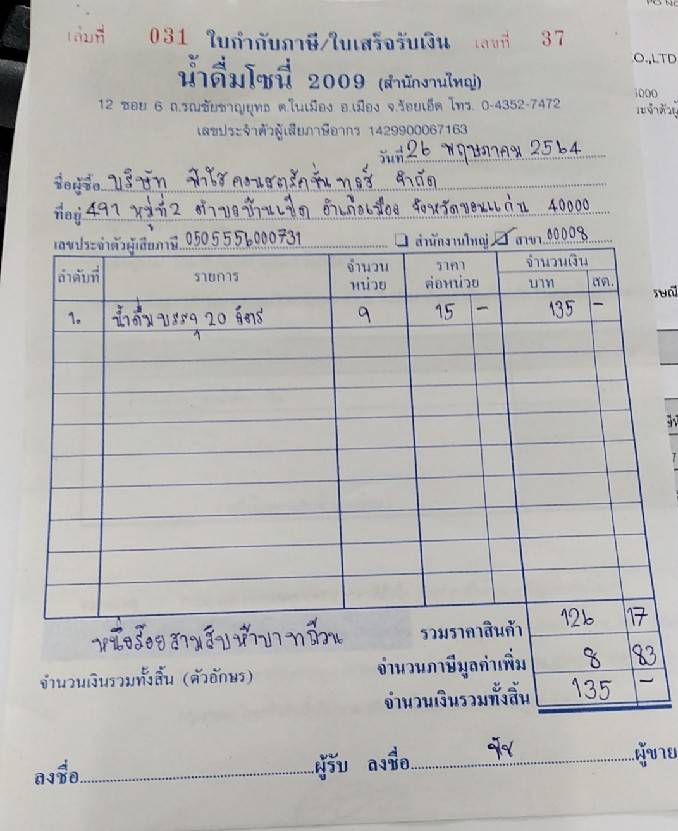 เล่มที่ 031 ใบกำกับภาษี/ใบเสร็จรับเงิน เลขที่ 37
น้ำดื่มโซนี่ 2009 (สำนักงานใหญ่)
12 ซอย 6 ถ.รณชัยชาญยุทธ ต.ในเมือง อ.เมือง จ.ร้อยเอ็ด โทร. 0-4352-7472
เลขประจำตัวผู้เสียภาษีอากร 1429900067163
วันที่ 26 พฤษภาคม 2564
ชื่อผู้ซื้อ บริษัท ฟ้าใส คอนสตรัคชั่น จำกัด
ที่อยู่ 491 หมู่ที่ 2 ตำบลบ้านเป็ด อำเภอเมือง จังหวัดขอนแก่น 40000
เลขประจำตัวผู้เสียภาษี 0505556000731 สำนักงานใหญ่ สาขา 00008
ลำดับที่ รายการ จำนวนหน่วย ราคาต่อหน่วย จำนวนเงิน บาท สต.
1. น้ำดื่มบรรจุ 20 ลิตร 9 15 - 135 -
รวมราคาสินค้า 126 17
หนึ่งร้อยสามสิบห้าบาทถ้วน
จำนวนภาษีมูลค่าเพิ่ม 8 83
จำนวนเงินรวมทั้งสิ้น (ตัวอักษร) จำนวนเงินรวมทั้งสิ้น 135 -
ลงชื่อ ผู้รับ ลงชื่อ ผู้ขาย
O.,LTD